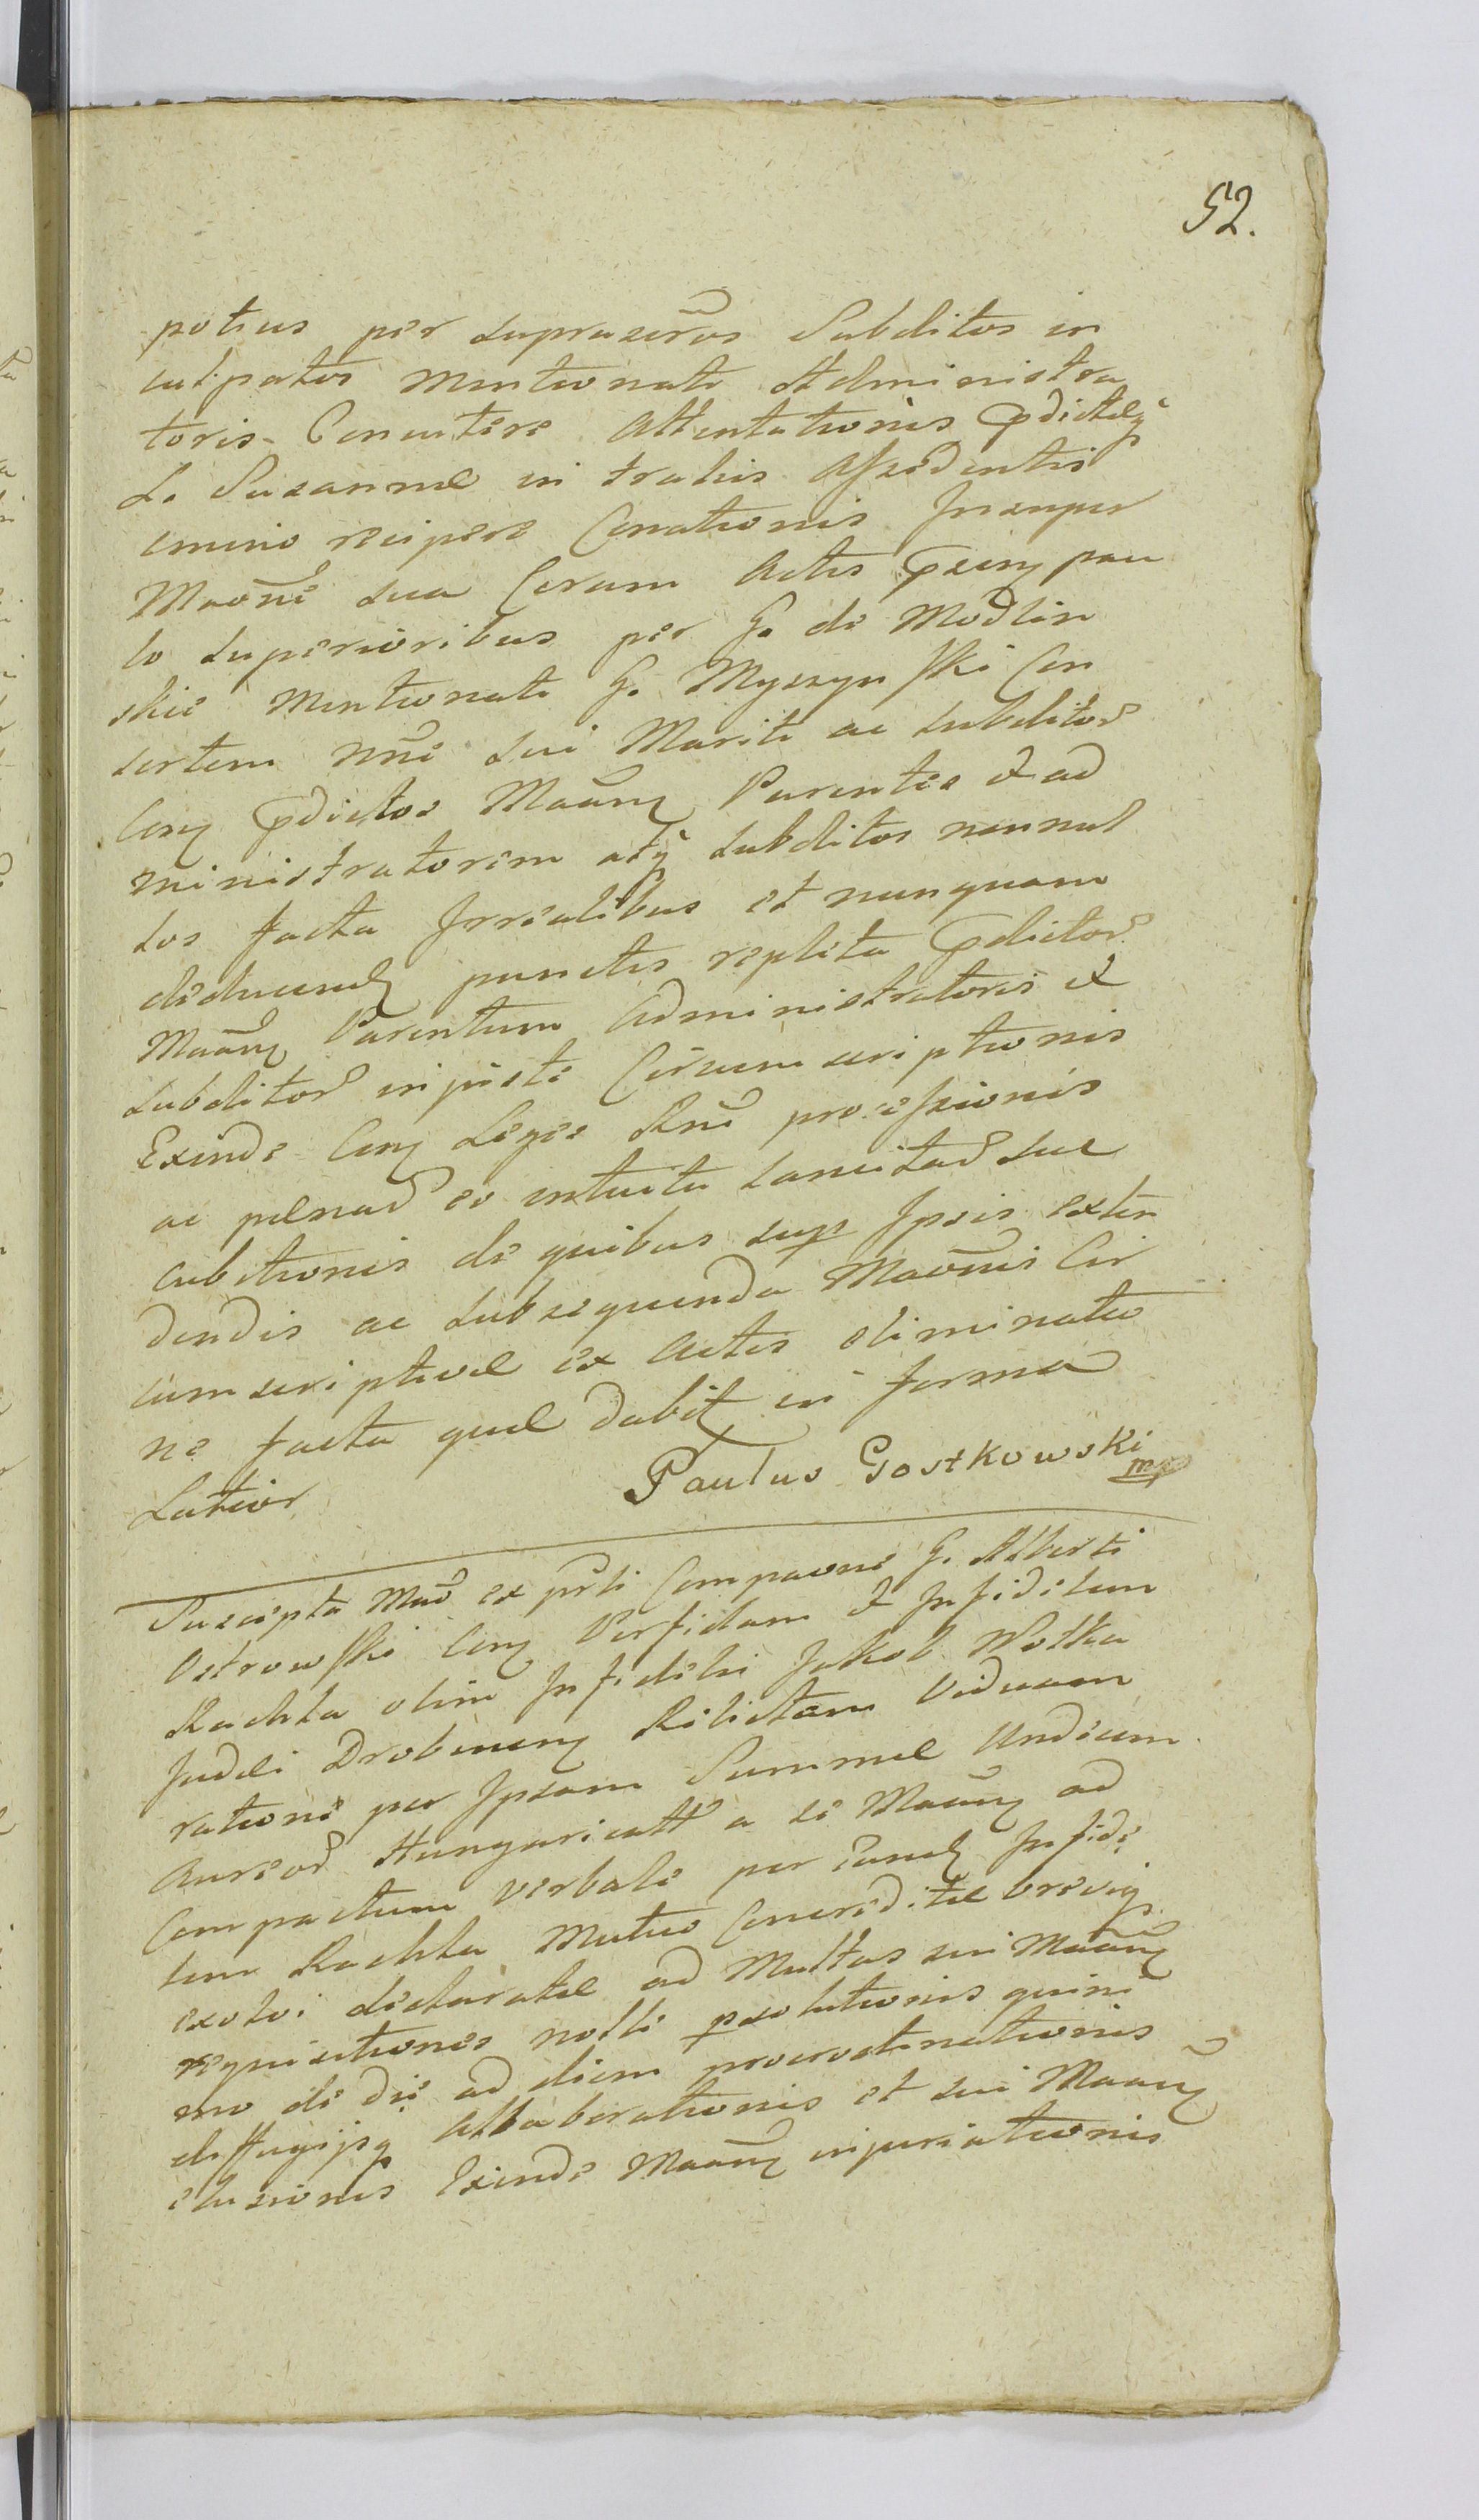 52.
potius per suprascr̃os Subditos in
culpatos mentionati Administra
toris Concutere attentationis p̃dictaeq̃
L. Susannae in trahis assedentis
cmino recipere Conationis Insuper
Maõne sua Coram Actis p̃sentq̃ pau
lo superioribus per G. de Modlin
skie mentionati G. Myszynski Con
sortem nñe sui Mariti ac subditor̃
Conq̃ p̃dictos Maõrum Parentes et ad
ministratorem atq̃ subditos nonnul
los facta Irrealibus et nunquam
deducendq̃ punctis repleta p̃dictor̃
Maõrum Parentum Administratoris et
subditor̃ injuste Circumscriptionis
Exinde Conq̃ Leges Rñi processionis
ac penar̃ eo intuitu sancitar̃ suc
cubitionis de quibus sup Ipsis exten
dendis ac subsequenda Maõnis Cir
cumscriptivae ex Actis eliminatio
ne facta quae dabit in forma
Latior
Paulus Gostkowski mp
Suscepta Mañ ex prti Compaone G. Alberti
Ostrowski Conq̃ Perfidam et Infidelem
Rachla olim Infidelis Jakob Wolka
Judaei Drobinenq̃ Relictam Viduam
ratione per Ipsam Summae Undecim
Aureor̃ Hungaricall a se Maõnq̃ ad
Compactum verbale per eandq̃ Infide
lem Rachla Mutuo Concreditae breviq̃
exolvi declaratae ad Multas sui Maõnq̃
requisitiones nolle pexolutionis quini
mo de die ad diem procrastinationis
diffugijsq̃ Allaborationis et sui Maõnq̃
elusionis Exinde Maõnq̃ injuriationis